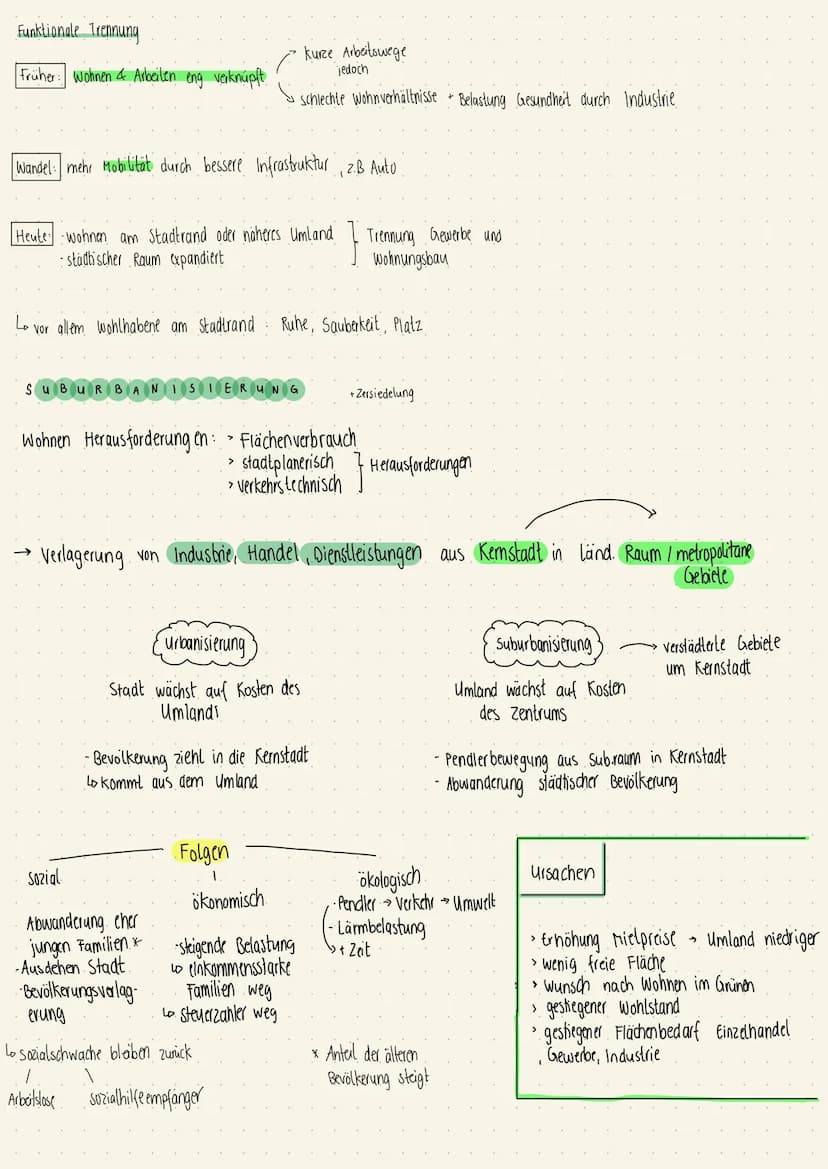 Funktionale Trennung
kurze Arbeitswege
jedoch
Früher: Wohnen & Arbeiten eng verknüpft
schlechte Wohnverhältnisse + Belastung Gesundheit durch Industrie
Wandel: mehr Mobilität durch bessere Infrastruktur, z.B Auto
Heute: · wohnen am Stadtrand oder näheres Umland
· städtischer Raum expandiert
Trennung Gewerbe und
Wohnungsbau
↳ vor allem wohlhabene am Stadtrand : Ruhe, Sauberkeit, Platz
SUBURBANISIERUNG
+ Zersiedelung
Wohnen Herausforderungen: > Flächenverbrauch
> stadtplanerisch
> verkehrstechnisch
Herausforderungen
→ Verlagerung von Industrie, Handel, Dienstleistungen aus Kernstadt in länd. Raum / metropolitane
Gebiete
Urbanisierung
Stadt wächst auf Kosten des
Umlands
- Bevölkerung zieht in die Kernstadt
↳ kommt aus dem Umland
Suburbanisierung → verstädterte Gebiete
um Kernstadt
Umland wächst auf Kosten
des Zentrums
- Pendlerbewegung aus Sub.raum in Kernstadt
- Abwanderung städtischer Bevölkerung
Folgen
Sozial
Abwanderung eher
jungen Familien *
- Ausdehen Stadt
· Bevölkerungsverlag-
erung
↳ sozialschwache bleiben zurück
Arbeitslose
Sozialhilfeempfänger
ökonomisch
· steigende Belastung
↳ einkommensstarke
Familien weg
↳ steuerzahler weg
ökologisch
· Pendler → Verkehr → Umwelt
- Lärmbelastung
+ Zeit
* Anteil der älteren
Bevölkerung steigt
Ursachen
> Erhöhung Mietpreise → Umland niedriger
> wenig freie Fläche
> wunsch nach Wohnen im Grünen
> gestiegener Wohlstand
> gestiegener Flächenbedarf Einzelhandel
, Gewerbe, Industrie